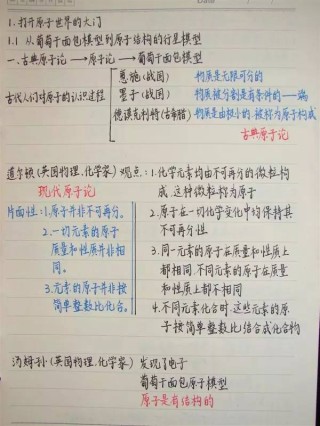 Date
1. 打开原子世界的大门
1.1 从葡萄干面包模型到原子结构的行星模型
一、古典原子论 → 原子论 → 葡萄干面包模型
古代人们对原子的认识过程
惠施(战国) 物质是无限可分的
墨子(战国) 物质被分割是有条件的——端
德谟克利特(古希腊) 物质是由极小的被称为原子构成
古典原子论
道尔顿(英国物理、化学家)观点:1.化学元素均由不可再分的微粒构
成,这种微粒称为原子
现代原子论
2.原子在一切化学变化中均保持其
不可再分性
3.同一元素的原子在质量和性质上
都相同,不同元素的原子在质量
和性质上都不相同
4.不同元素化合时,这些元素的原
子按简单整数比结合成化合物
片面性:1.原子并非不可再分。
2.一切元素的原子
质量和性质并非相
同。
3.元素的原子并非按
简单整数比化合。
汤姆孙(英国物理、化学家) 发现了电子
葡萄干面包原子模型
原子是有结构的